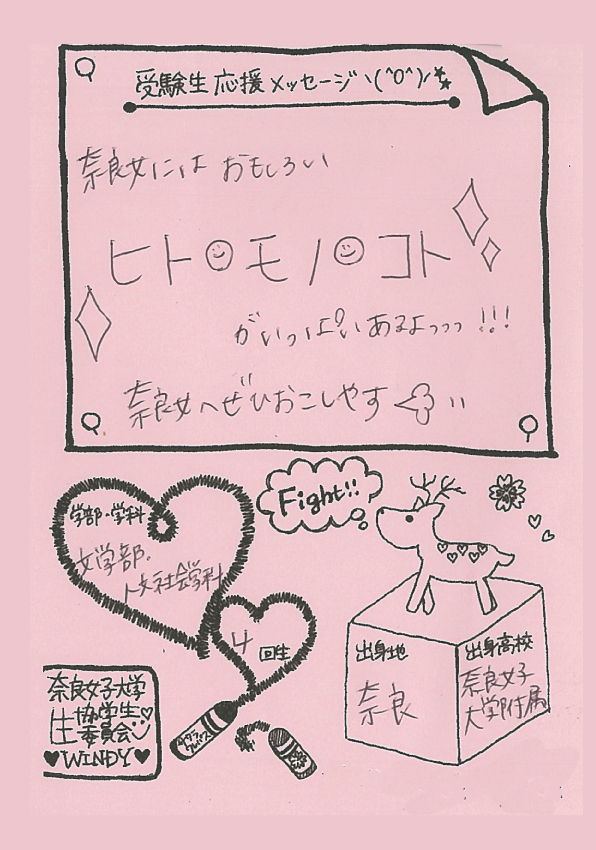 受験生応援メッセージ\(^o^)/
奈良女には おもしろい
ヒト☺モノ☺コト
がいっぱいあるよっっっ!!!
奈良女へぜひおこしやす
Fight!!
学部・学科
文学部・
人文社会学科
4回生
出身地
奈良
出身高校
奈良女子
大学附属
奈良女子大学
生協学生
委員会
♥WINDY♥
サクラ
クレパス